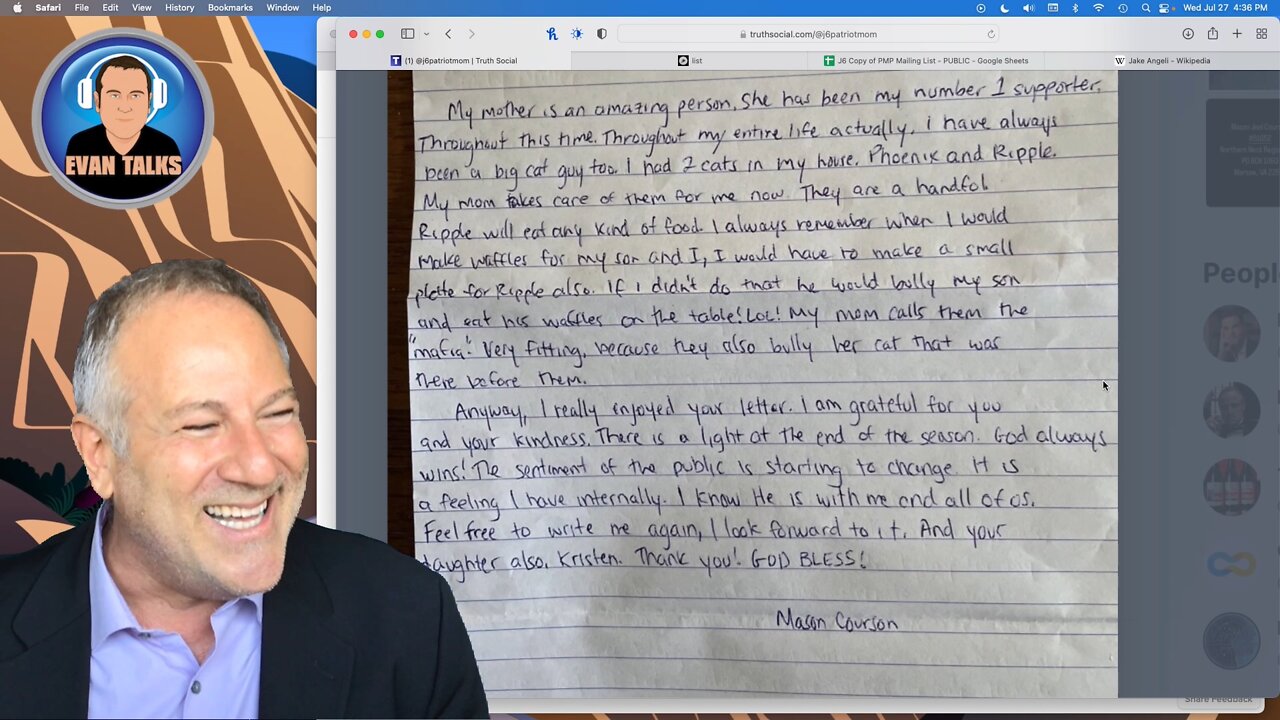 Safari File Edit View History Bookmarks Window Help
Wed Jul 27 4:36 PM
truthsocial.com/@j6patriotmom
(1) @j6patriotmom | Truth Social
list
J6 Copy of PMP Mailing List - PUBLIC - Google Sheets
Jake Angeli - Wikipedia
EVAN TALKS
My mother is an amazing person. She has been my number 1 supporter.
Throughout this time. Throughout my entire life actually. i have always
been a big cat guy too. I had 2 cats in my house. Phoenix and Ripple.
My mom takes care of them for me now. They are a handful
Ripple will eat any kind of food. I always remember when I would
make waffles for my son and I, I would have to make a small
plate for Ripple also. If i didn't do that he would bully my son
and eat his waffles on the table! LOL! My mom calls them the
"mafia". Very fitting, because they also bully her cat that was
there before them.
Anyway, I really enjoyed your letter. I am grateful for you
and your kindness. There is a light at the end of the season. God always
wins! The sentiment of the public is starting to change. It is
a feeling I have internally. I know He is with me and all of us.
Feel free to write me again, I look forward to it. And your
daughter also, Kristen. Thank you! GOD BLESS!
Mason Courson
Peopl
Share Feedback